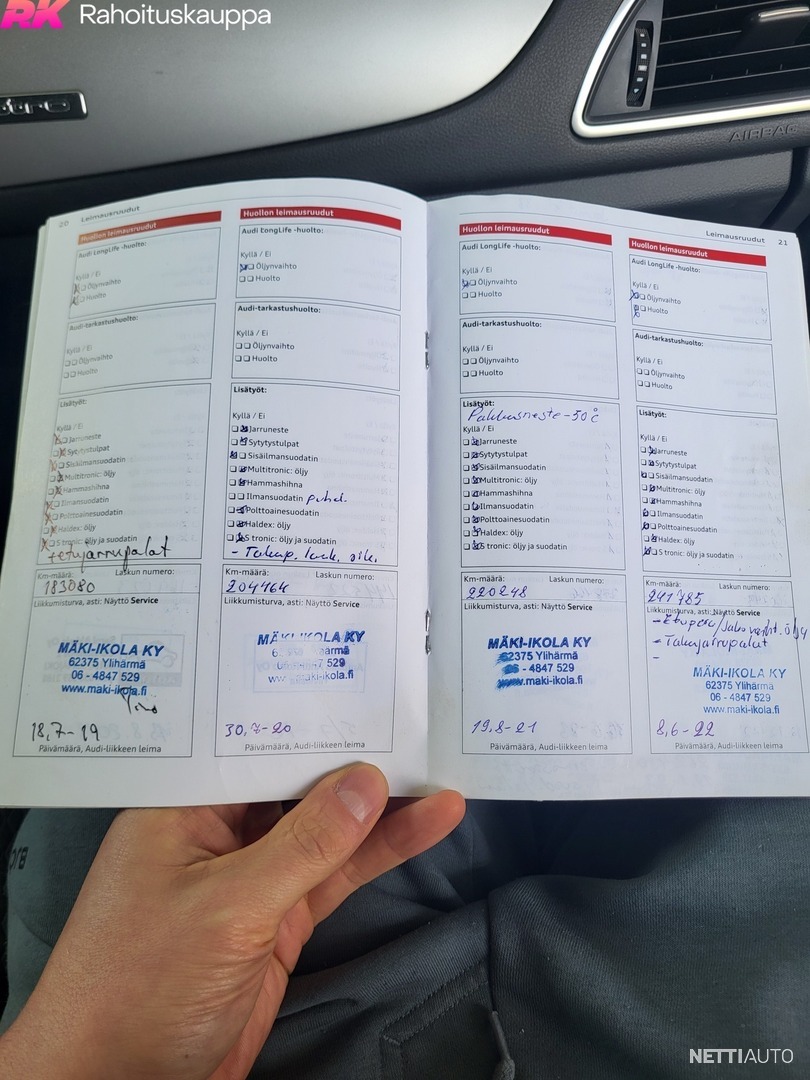 RK Rahoituskauppa
AIRBAG
20 Leimausruudut
Huollon leimausruudut
Audi LongLife -huolto:
Kyllä / Ei
Öljynvaihto
Huolto
Audi-tarkastushuolto:
Kyllä / Ei
Öljynvaihto
Huolto
Lisätyöt:
Kyllä / Ei
Jarruneste
Sytytystulpat
Sisäilmansuodatin
Multitronic: öljy
Hammashihna
Ilmansuodatin
Polttoainesuodatin
Haldex: öljy
S tronic: öljy ja suodatin
+etujarrupalat
Km-määrä: Laskun numero:
183080
Liikkumisturva, asti: Näyttö Service
MÄKI-IKOLA KY
62375 Ylihärmä
06 - 4847 529
www.maki-ikola.fi
18,7-19
Päivämäärä, Audi-liikkeen leima
Huollon leimausruudut
Audi LongLife -huolto:
Kyllä / Ei
Öljynvaihto
Huolto
Audi-tarkastushuolto:
Kyllä / Ei
Öljynvaihto
Huolto
Lisätyöt:
Kyllä / Ei
Jarruneste
Sytytystulpat
Sisäilmansuodatin
Multitronic: öljy
Hammashihna
Ilmansuodatin puhd.
Polttoainesuodatin
Haldex: öljy
S tronic: öljy ja suodatin
Km-määrä: Laskun numero:
204464
Liikkumisturva, asti: Näyttö Service
MÄKI-IKOLA KY
529
30,7-20
Päivämäärä, Audi-liikkeen leima
Leimausruudut 21
Huollon leimausruudut
Audi LongLife -huolto:
Kyllä / Ei
Öljynvaihto
Huolto
Audi-tarkastushuolto:
Kyllä / Ei
Öljynvaihto
Huolto
Lisätyöt:
Pakkasneste -50°C
Kyllä / Ei
Jarruneste
Sytytystulpat
Sisäilmansuodatin
Multitronic: öljy
Hammashihna
Ilmansuodatin
Polttoainesuodatin
Haldex: öljy
S tronic: öljy ja suodatin
Km-määrä: Laskun numero:
220248
Liikkumisturva, asti: Näyttö Service
MÄKI-IKOLA KY
62375 Ylihärmä
06 - 4847 529
www.maki-ikola.fi
19,8-21
Päivämäärä, Audi-liikkeen leima
Huollon leimausruudut
Audi LongLife -huolto:
Kyllä / Ei
Öljynvaihto
Huolto
Audi-tarkastushuolto:
Kyllä / Ei
Öljynvaihto
Huolto
Lisätyöt:
Kyllä / Ei
Jarruneste
Sytytystulpat
Sisäilmansuodatin
Multitronic: öljy
Hammashihna
Ilmansuodatin
Polttoainesuodatin
Haldex: öljy
S tronic: öljy ja suodatin
Km-määrä: Laskun numero:
241785
Liikkumisturva, asti: Näyttö Service
- Takajarrupalat
MÄKI-IKOLA KY
62375 Ylihärmä
06 - 4847 529
www.maki-ikola.fi
8,6-22
Päivämäärä, Audi-liikkeen leima
NETTIAUTO